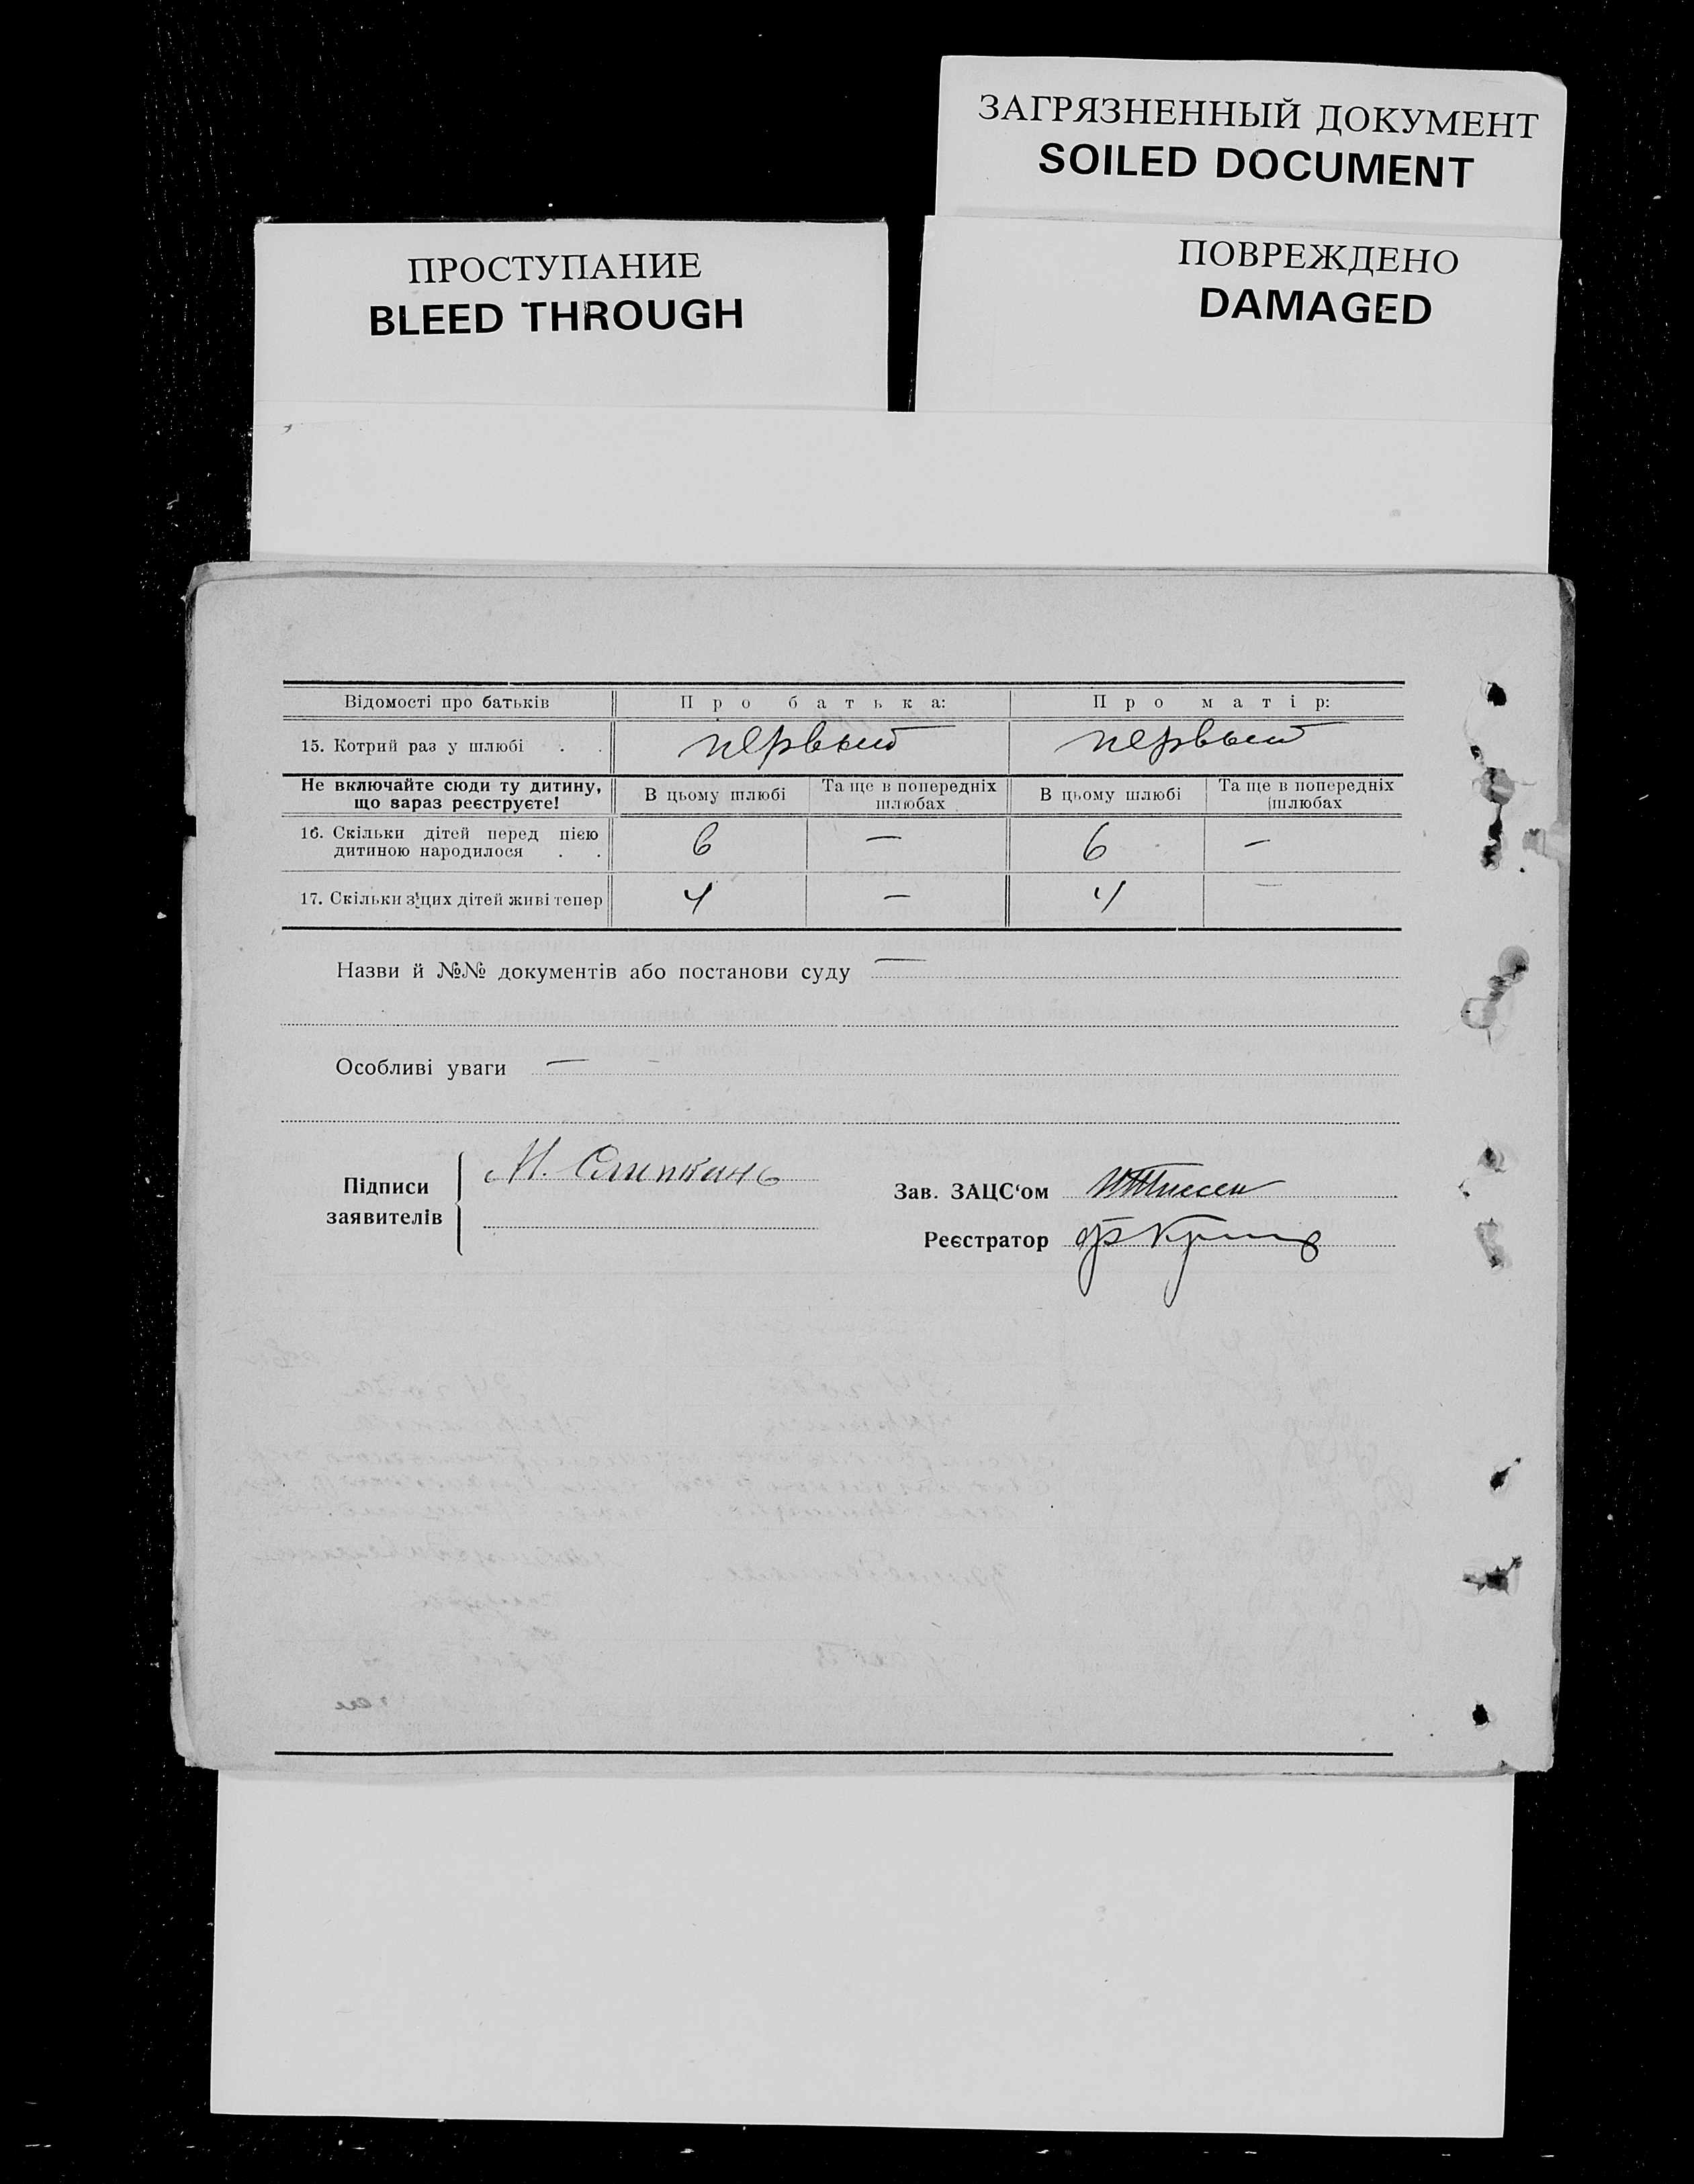 ЗАГРЯЗНЕННЫЙ ДОКУМЕНТ
SOILED DOCUMENT
ПРОСТУПАНИЕ
BLEED THROUGH
ПОВРЕЖДЕНО
DAMAGED
Відомості про батьків Про батька: Про матір:
15. Котрий раз у шлюбі . . первый первый
Не включайте сюди ту дитину, що зараз реєструєте! В цьому шлюбі Та ще в попередніх шлюбах В цьому шлюбі Та ще в попередніх шлюбах
16. Скільки дітей перед цією дитиною народилося . . 6 — 6 —
17. Скільки з цих дітей живі тепер 4 — 4 —
Назви й №№ документів або постанови суду —
Особливі уваги — –
Підписи заявителів М. Слипкань
Зав. ЗАЦС‘ом
Реєстратор